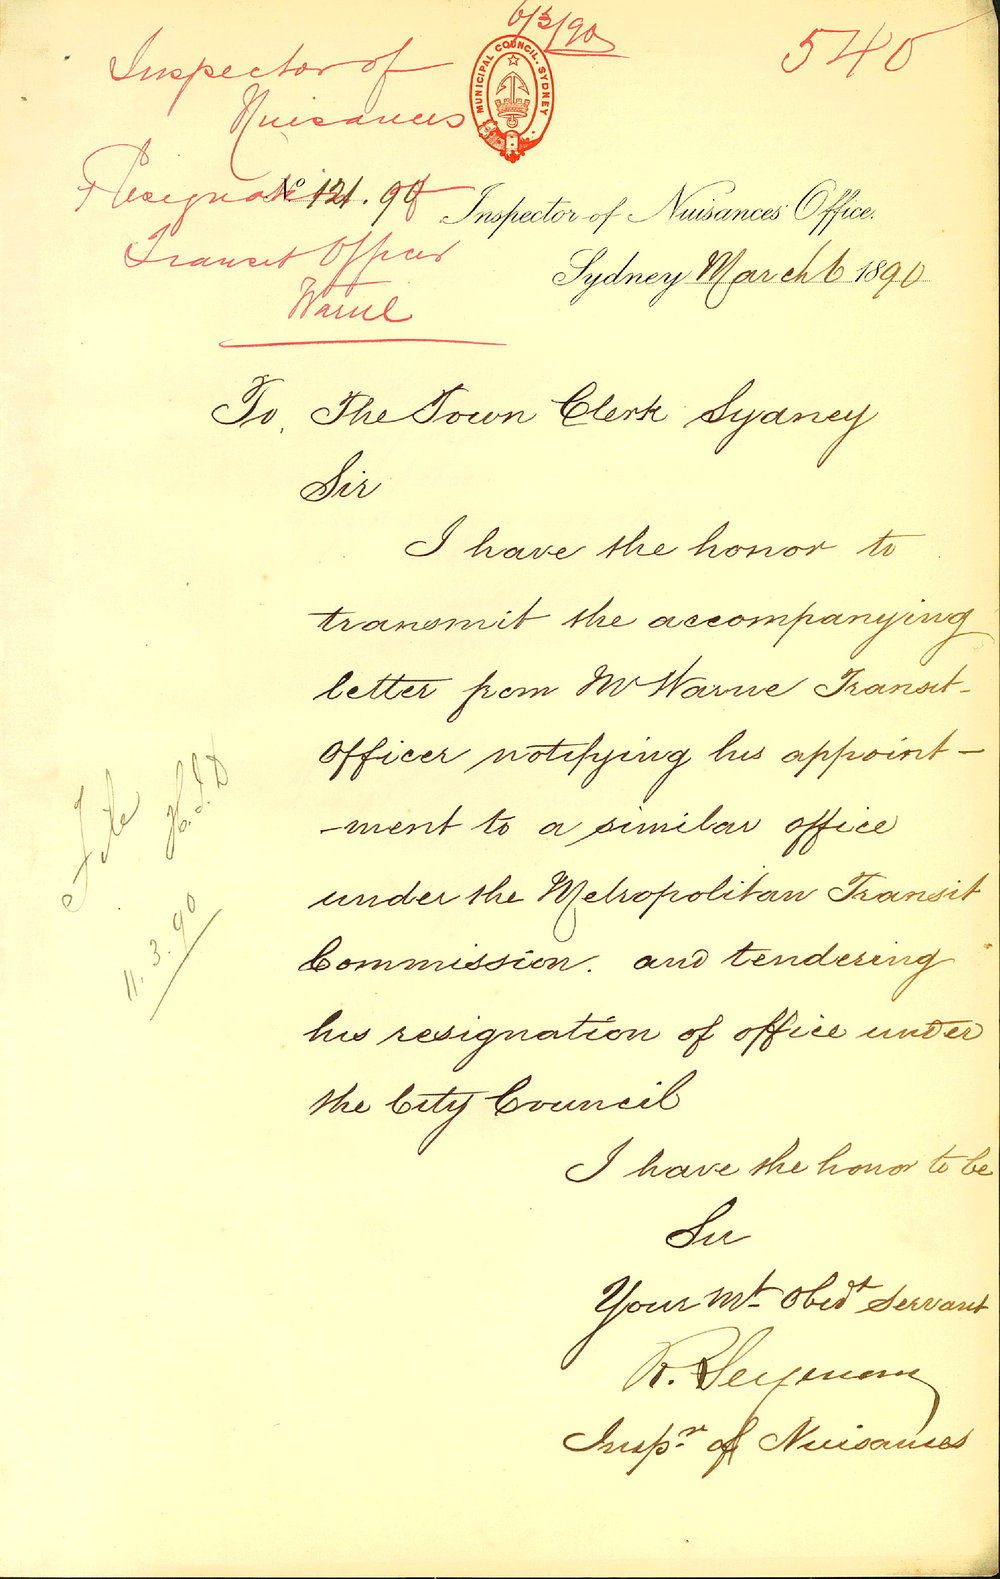 6/3/90
540
Inspector of
Nuisances
Resignation of
Transit Officer
Warne
MUNICIPAL COUNCIL. SYDNEY
No 121.90
Inspector of Nuisances Office.
Sydney March 6 1890
To, The Town Clerk Sydney
Sir
I have the honor to
transmit the accompanying
letter from Mr Warne Transit-
Officer notifying his appoint-
-ment to a similar office
under the Metropolitan Transit
Commission. and tendering
his resignation of office under
the City Council
I have the honor to be
Sir
Your Mt Obedt Servant
R. Seymour
Inspr of Nuisances
File
H.S.D
11.3.90